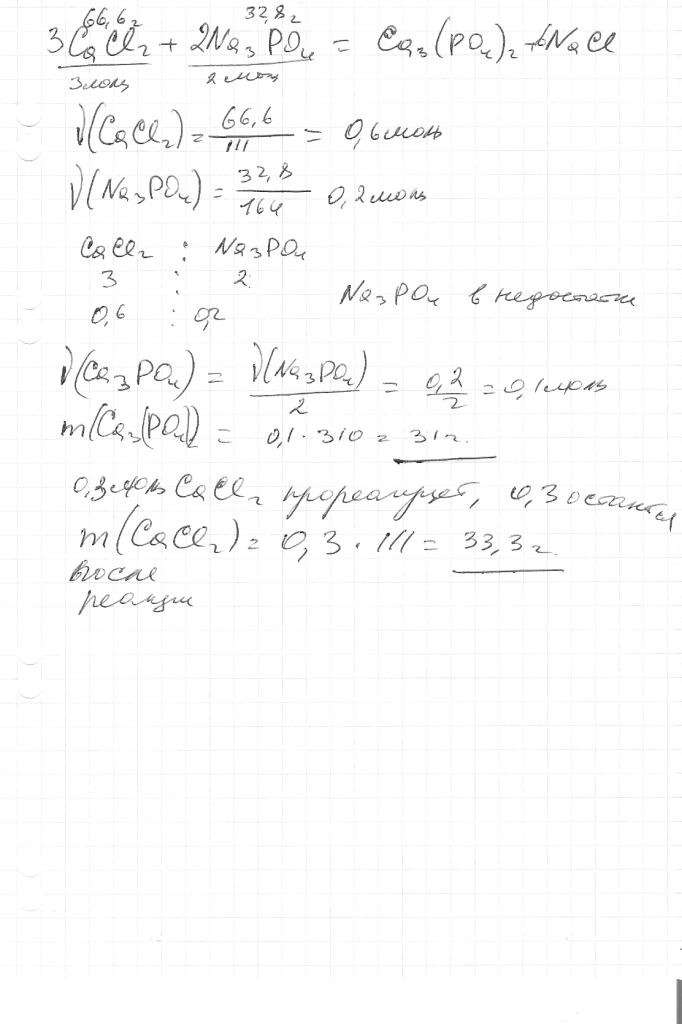 66,6г 32,8г
3CaCl₂ + 2Na₃PO₄ = Ca₃(PO₄)₂ + 6NaCl
3моль 2моль
ν(CaCl₂) = 66,6/111 = 0,6моль
ν(Na₃PO₄) = 32,8/164 0,2моль
CaCl₂ : Na₃PO₄
3 : 2
Na₃PO₄ в недостатке
0,6 : 0,2
ν(Ca₃PO₄) = ν(Na₃PO₄)/2 = 0,2/2 = 0,1моль
m(Ca₃(PO₄)₂ = 0,1 · 310 = 31г.
0,3моль CaCl₂ прореагирует, 0,3 останется
m(CaCl₂) = 0,3 · 111 = 33,3г.
после
реакции